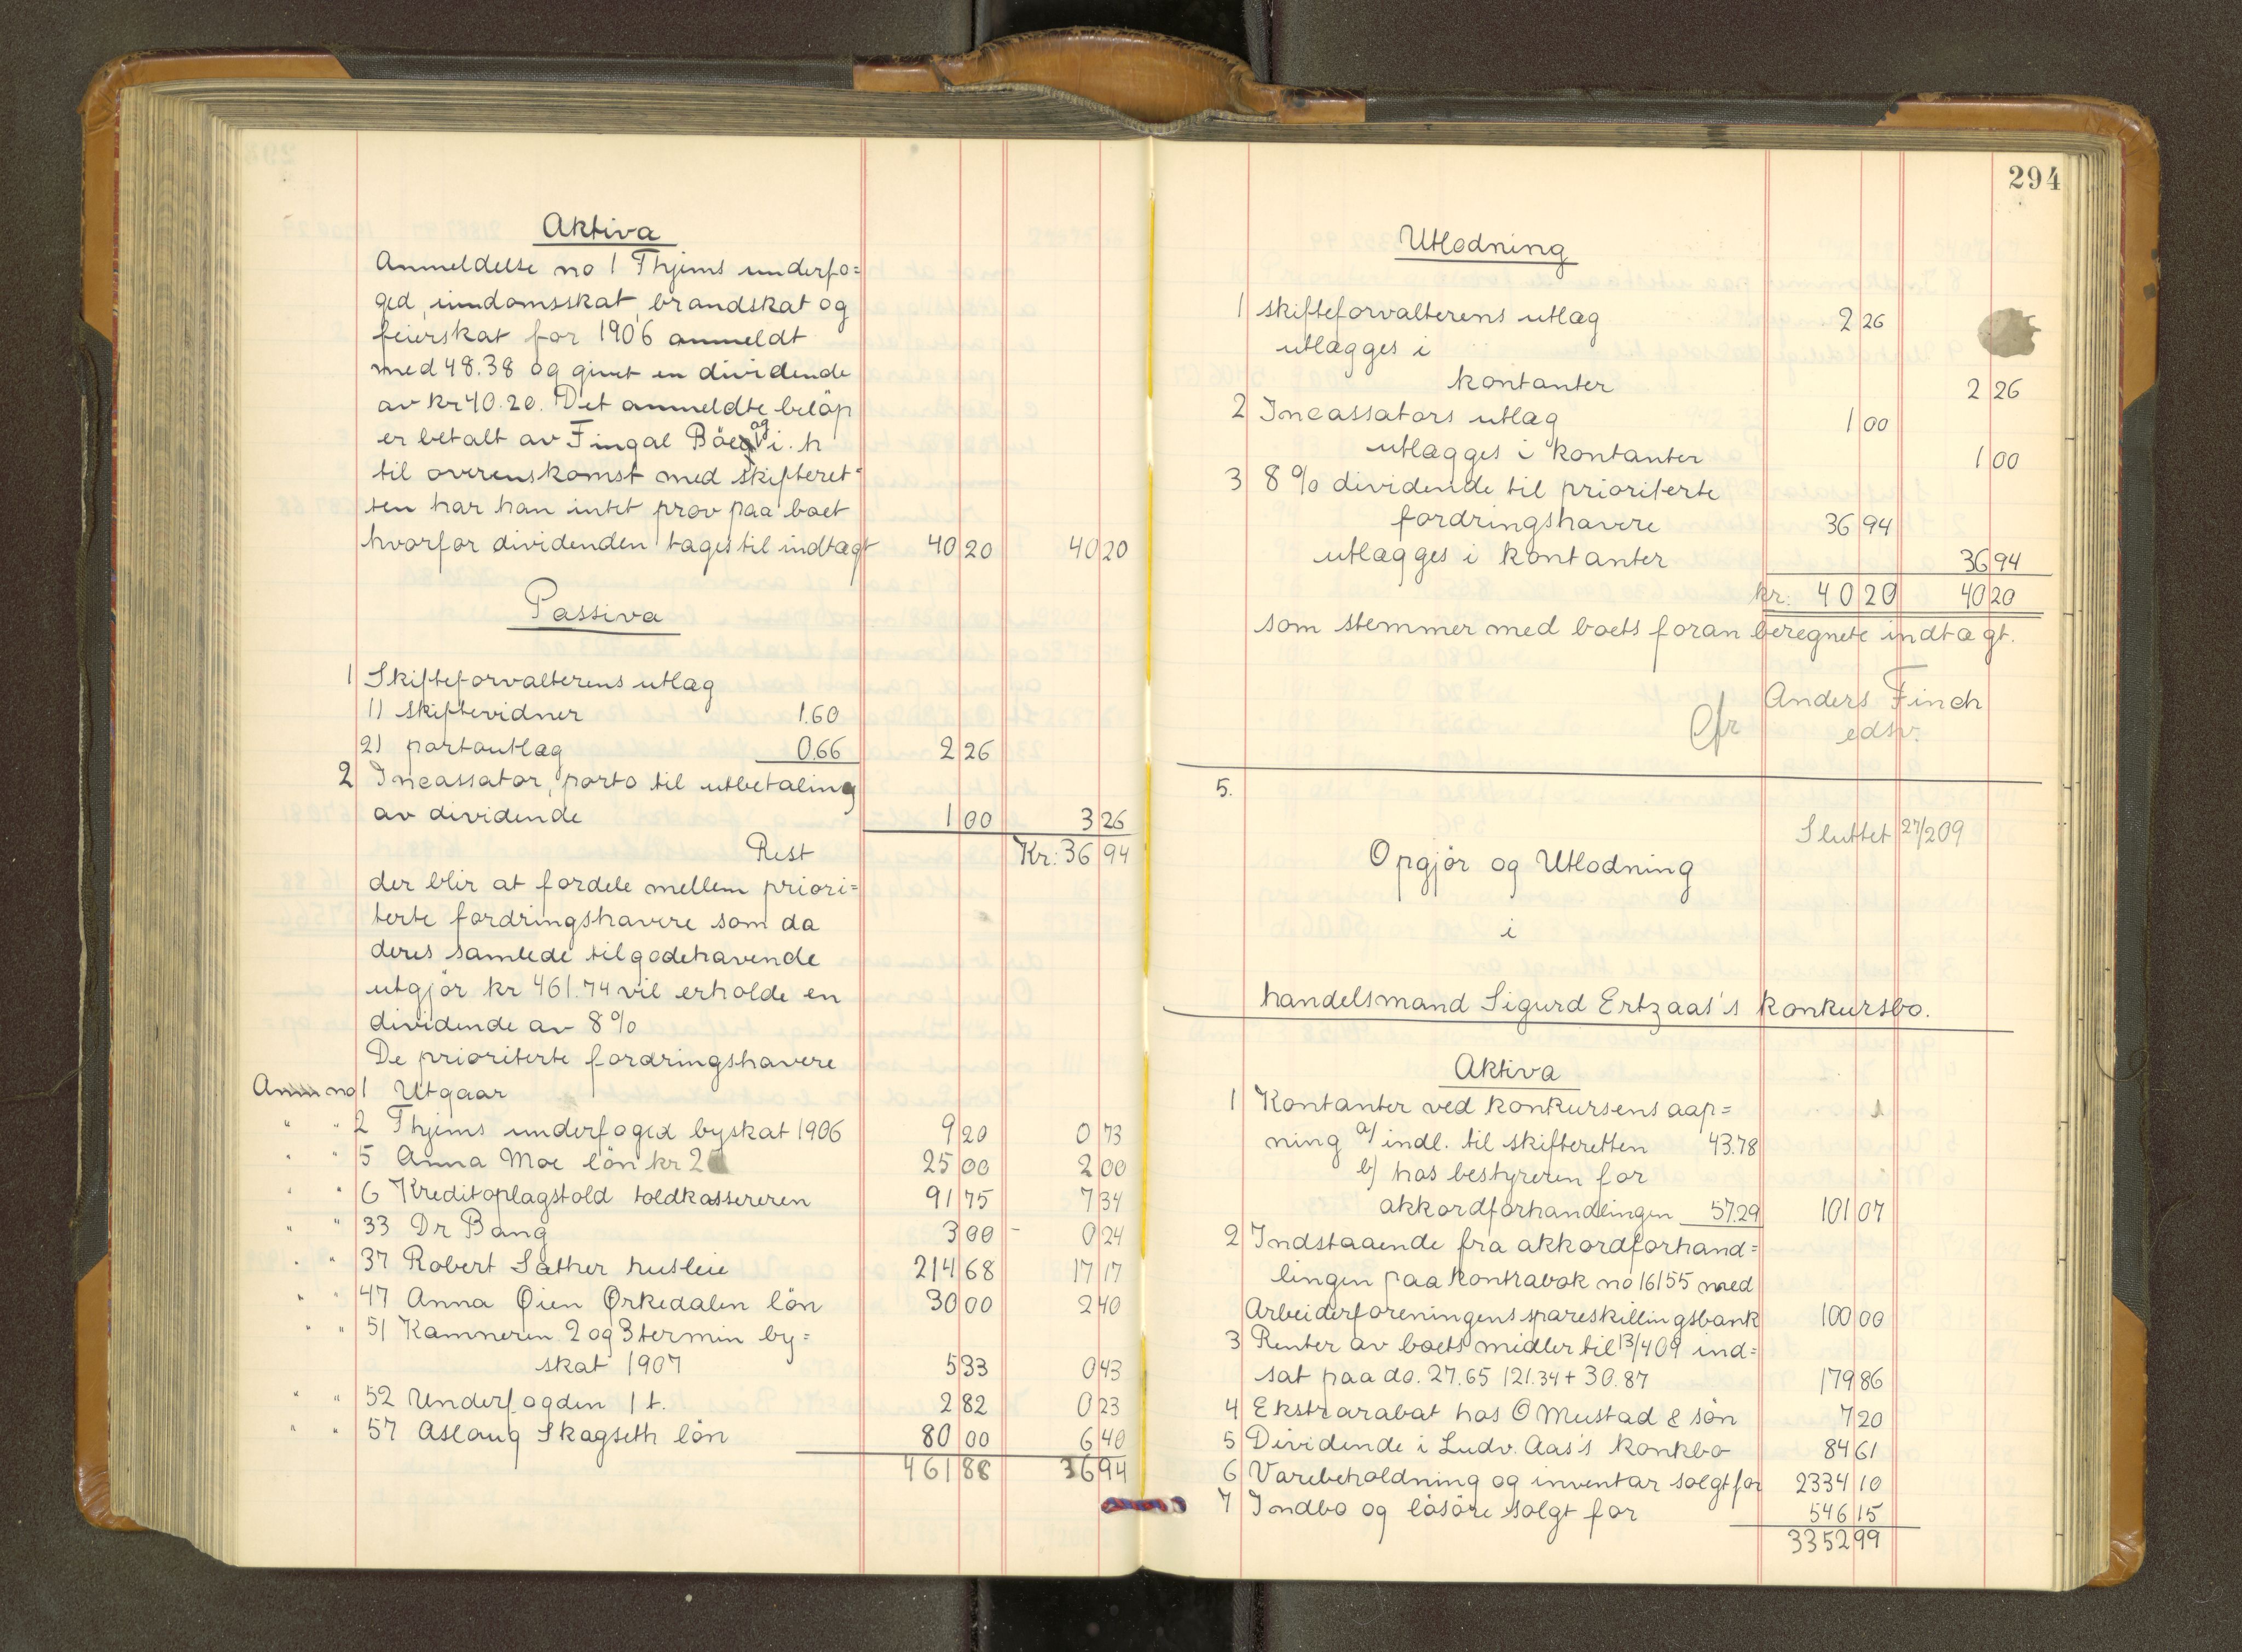 Aktiva
Anmeldelse no 1 Thjems underfo=
ged, iindomsskat, brandskat og
feierskat for 1906 anmeldt
med 48.38 og givet en dividende
av kr 40.20. Det anmeldte belöp
er betalt av Fingal Böe og i.h
til overenskomst med skifteret=
ten har han intet prov paa boet
hvorfor dividenden tages til indtægt 40 20 40 20
Passiva
1 Skifteforvalterens utlæg
1) skiftevidner 1.60
2) portoutlæg 0.66 2 26
2 Incassator, porto til utbetaling
av dividende 1 00 3 26
Rest Kr: 36 94
der blir at fordele mellem priori=
terte fordringshavere som da
deres samlede tilgodehavende
utgjör kr 461.74 vil erholde en
dividende av 8%
De prioriterte fordringshavere
Anm no 1 Utgaar
" " 2 Thjems underfoged byskat 1906 9 20 0 73
" " 5 Anna Moe lön kr 2 25 00 2 00
" " 6 Kreditoplagstold toldkassereren 91 75 7 34
" " 33 Dr Bang 3 00 - 0 24
" " 37 Robert Sather husleie 214 68 17 17
" " 47 Anna Øien Ørkedalen lön 30 00 2 40
" " 51 Kamneren 2 og 3 termin by=
skat 1907 5 33 0 43
" " 52 Underfogden 1 t. 2 82 0 23
" " 57 Aslaug Skagseth lön 80 00 6 40
461 88 36 94
294
Utlodning
1 skifteforvalterens utlæg 2 26
utlægges i
kontanter 2 26
2 Incassators utlæg 1 00
utlægges i kontanter 1 00
3 8% dividende til prioriterte
fordringshavere 36 94
utlægges i kontanter 36 94
kr: 40 20 40 20
som stemmer med boets foran beregnete indtægt.
Anders Finch
edsv.
5.
Sluttet 27/2 09
Opgjör og Utlodning
i
handelsmand Sigurd Ertzaas's konkursbo.
Aktiva
1 Kontanter ved konkursens aap=
ning a/ indl. til skifteretten 43.78
b/ hos bestyreren for
akkordforhandlingen 57.29 101 07
2 Indstaaende fra akkordforhand=
lingen paa kontrabok no 16155 med
Arbeiderforeningens spareskillingsbank 100 00
3 Renter av boets midler til 13/4 09 ind=
sat paa do. 27.65 121.34 + 30.87 179 86
4 Ekstrarabat hos O Mustad & sön 7 20
5 Dividende i Ludv. Aas's konkbo 84 61
6 Varebeholdning og inventar solgt for 2334 10
7 Indbo og lösöre solgt for 546 15
3352 99